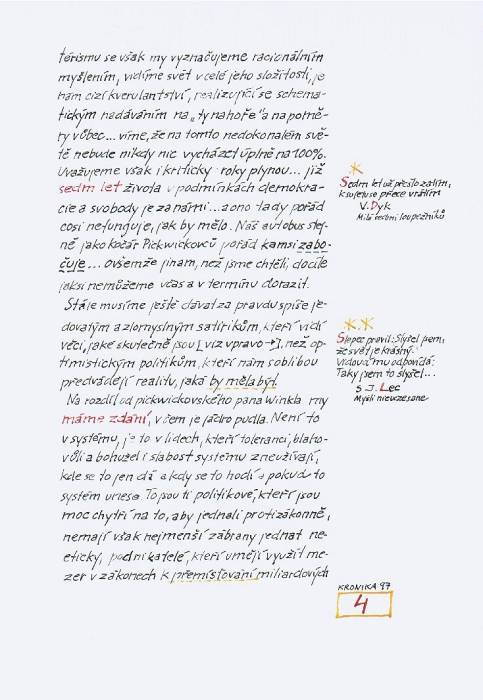 térismu se však my vyznačujeme racionálním
myšlením, vidíme svět v celé jeho složitosti, je
nám cizí kverulantství, realizující se schema-
tickým nadáváním na „ty nahoře" a na pomě-
ry vůbec... víme, že na tomto nedokonalém svě-
tě nebude nikdy nic vycházet úplně na 100%.
Uvažujeme však i kriticky - roky plynou... již
sedm let života v podmínkách demokra-
cie a svobody je za námi... a ono tady pořád
cosi nefunguje, jak by mělo. Náš autobus stej-
ně jako kočár Pickwickovců pořád kamsi zabo-
čuje... ovšemže jinam, než jsme chtěli, do cíle
jaksi nemůžeme včas a v termínu dorazit.
Stále musíme ještě dávat za pravdu spíše je-
dovatým a zlomyslným satirikům, kteří vidí
věci, jaké skutečně jsou [viz vpravo →], než op-
timistickým politikům, kteří nám s oblibou
předvádějí realitu, jaká by měla být.
Na rozdíl od pickwickovského pana Winkla my
máme zdání, v čem je jádro pudla. Není to
v systému, je to v lidech, kteří toleranci, blaho-
vůli a bohužel i slabost systému zneužívají,
kde se to jen dá a kdy se to hodí a pokud to
systém unese. To jsou ti politikové, kteří jsou
moc chytří na to, aby jednali protizákonně,
nemají však nejmenší zábrany jednat ne-
eticky, podnikatelé, kteří umějí využít me-
zer v zákonech k přemisťování miliardových
*
Sedm let už přešlo zatím,
k sujetu se přece vrátím
V. Dyk
Milá sedmi loupežníků
*.*
Slepec pravil: Slyšel jsem,
že svět je krásný.
Vidoucí mu odpovídá:
Taky jsem to slyšel...
S. J. Lec
Myšli neuvzesane
KRONIKA 97
4